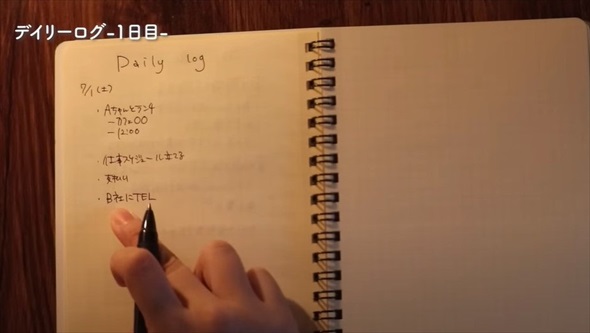 デイリーログ-1日目-
Daily log
7/1(土)
・Aちゃんとランチ
-カフェ〇〇
-12:00
・仕事スケジュール立てる
・B社にTEL